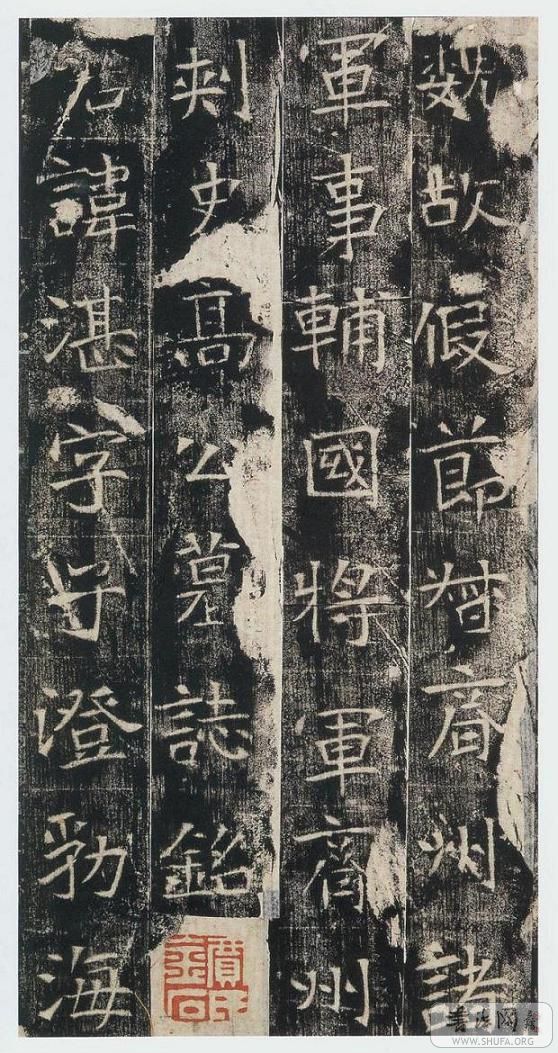 魏故假節督齊州諸
軍事輔國將軍齊州
刺史高公墓誌銘
君諱湛字子澄勃海
书法网
WWW.SHUFA.ORG